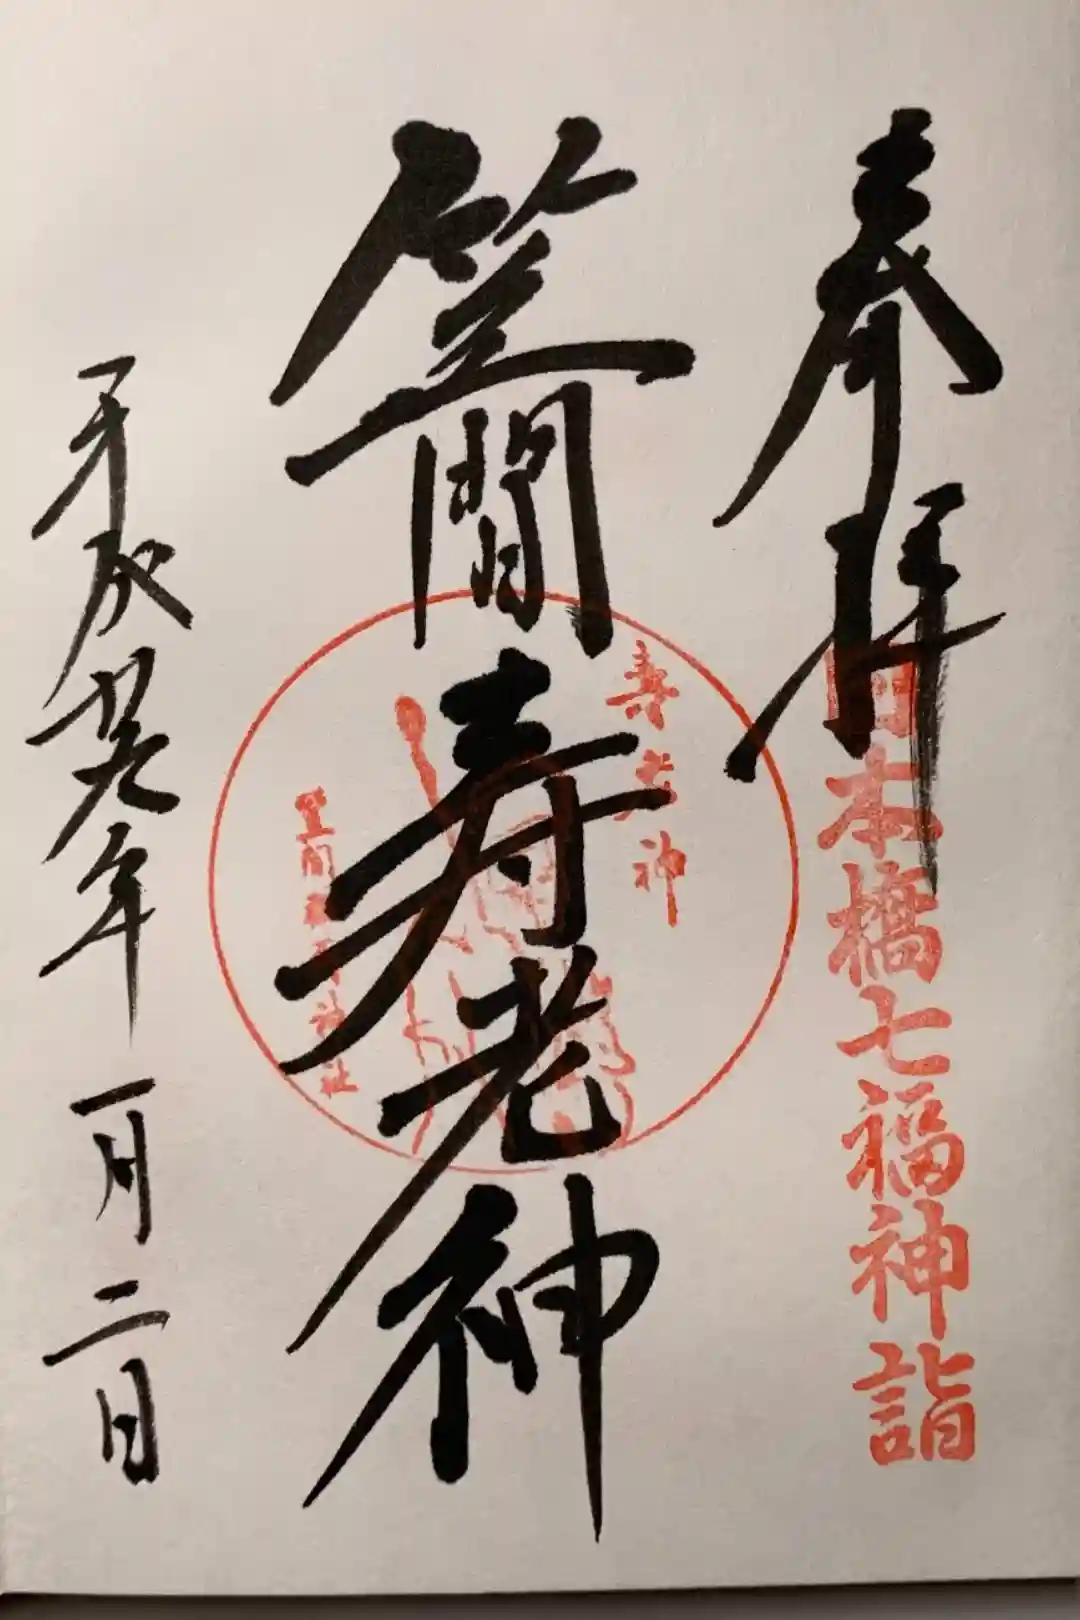 奉拝
日本橋七福神詣
寿老神
笠間寿老神
笠間稲荷神社
平成廿九年一月二日